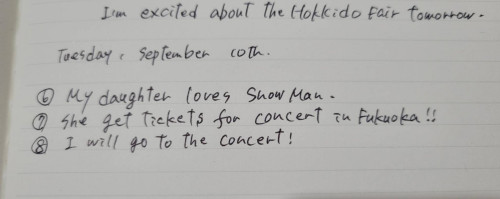 I'm excited about the Hokkido Fair tomorrow.
Tuesday, September 10th.
⑥ My daughter loves Snow Man.
⑦ She get tickets for concert in Fukuoka!!
⑧ I will go to the concert!